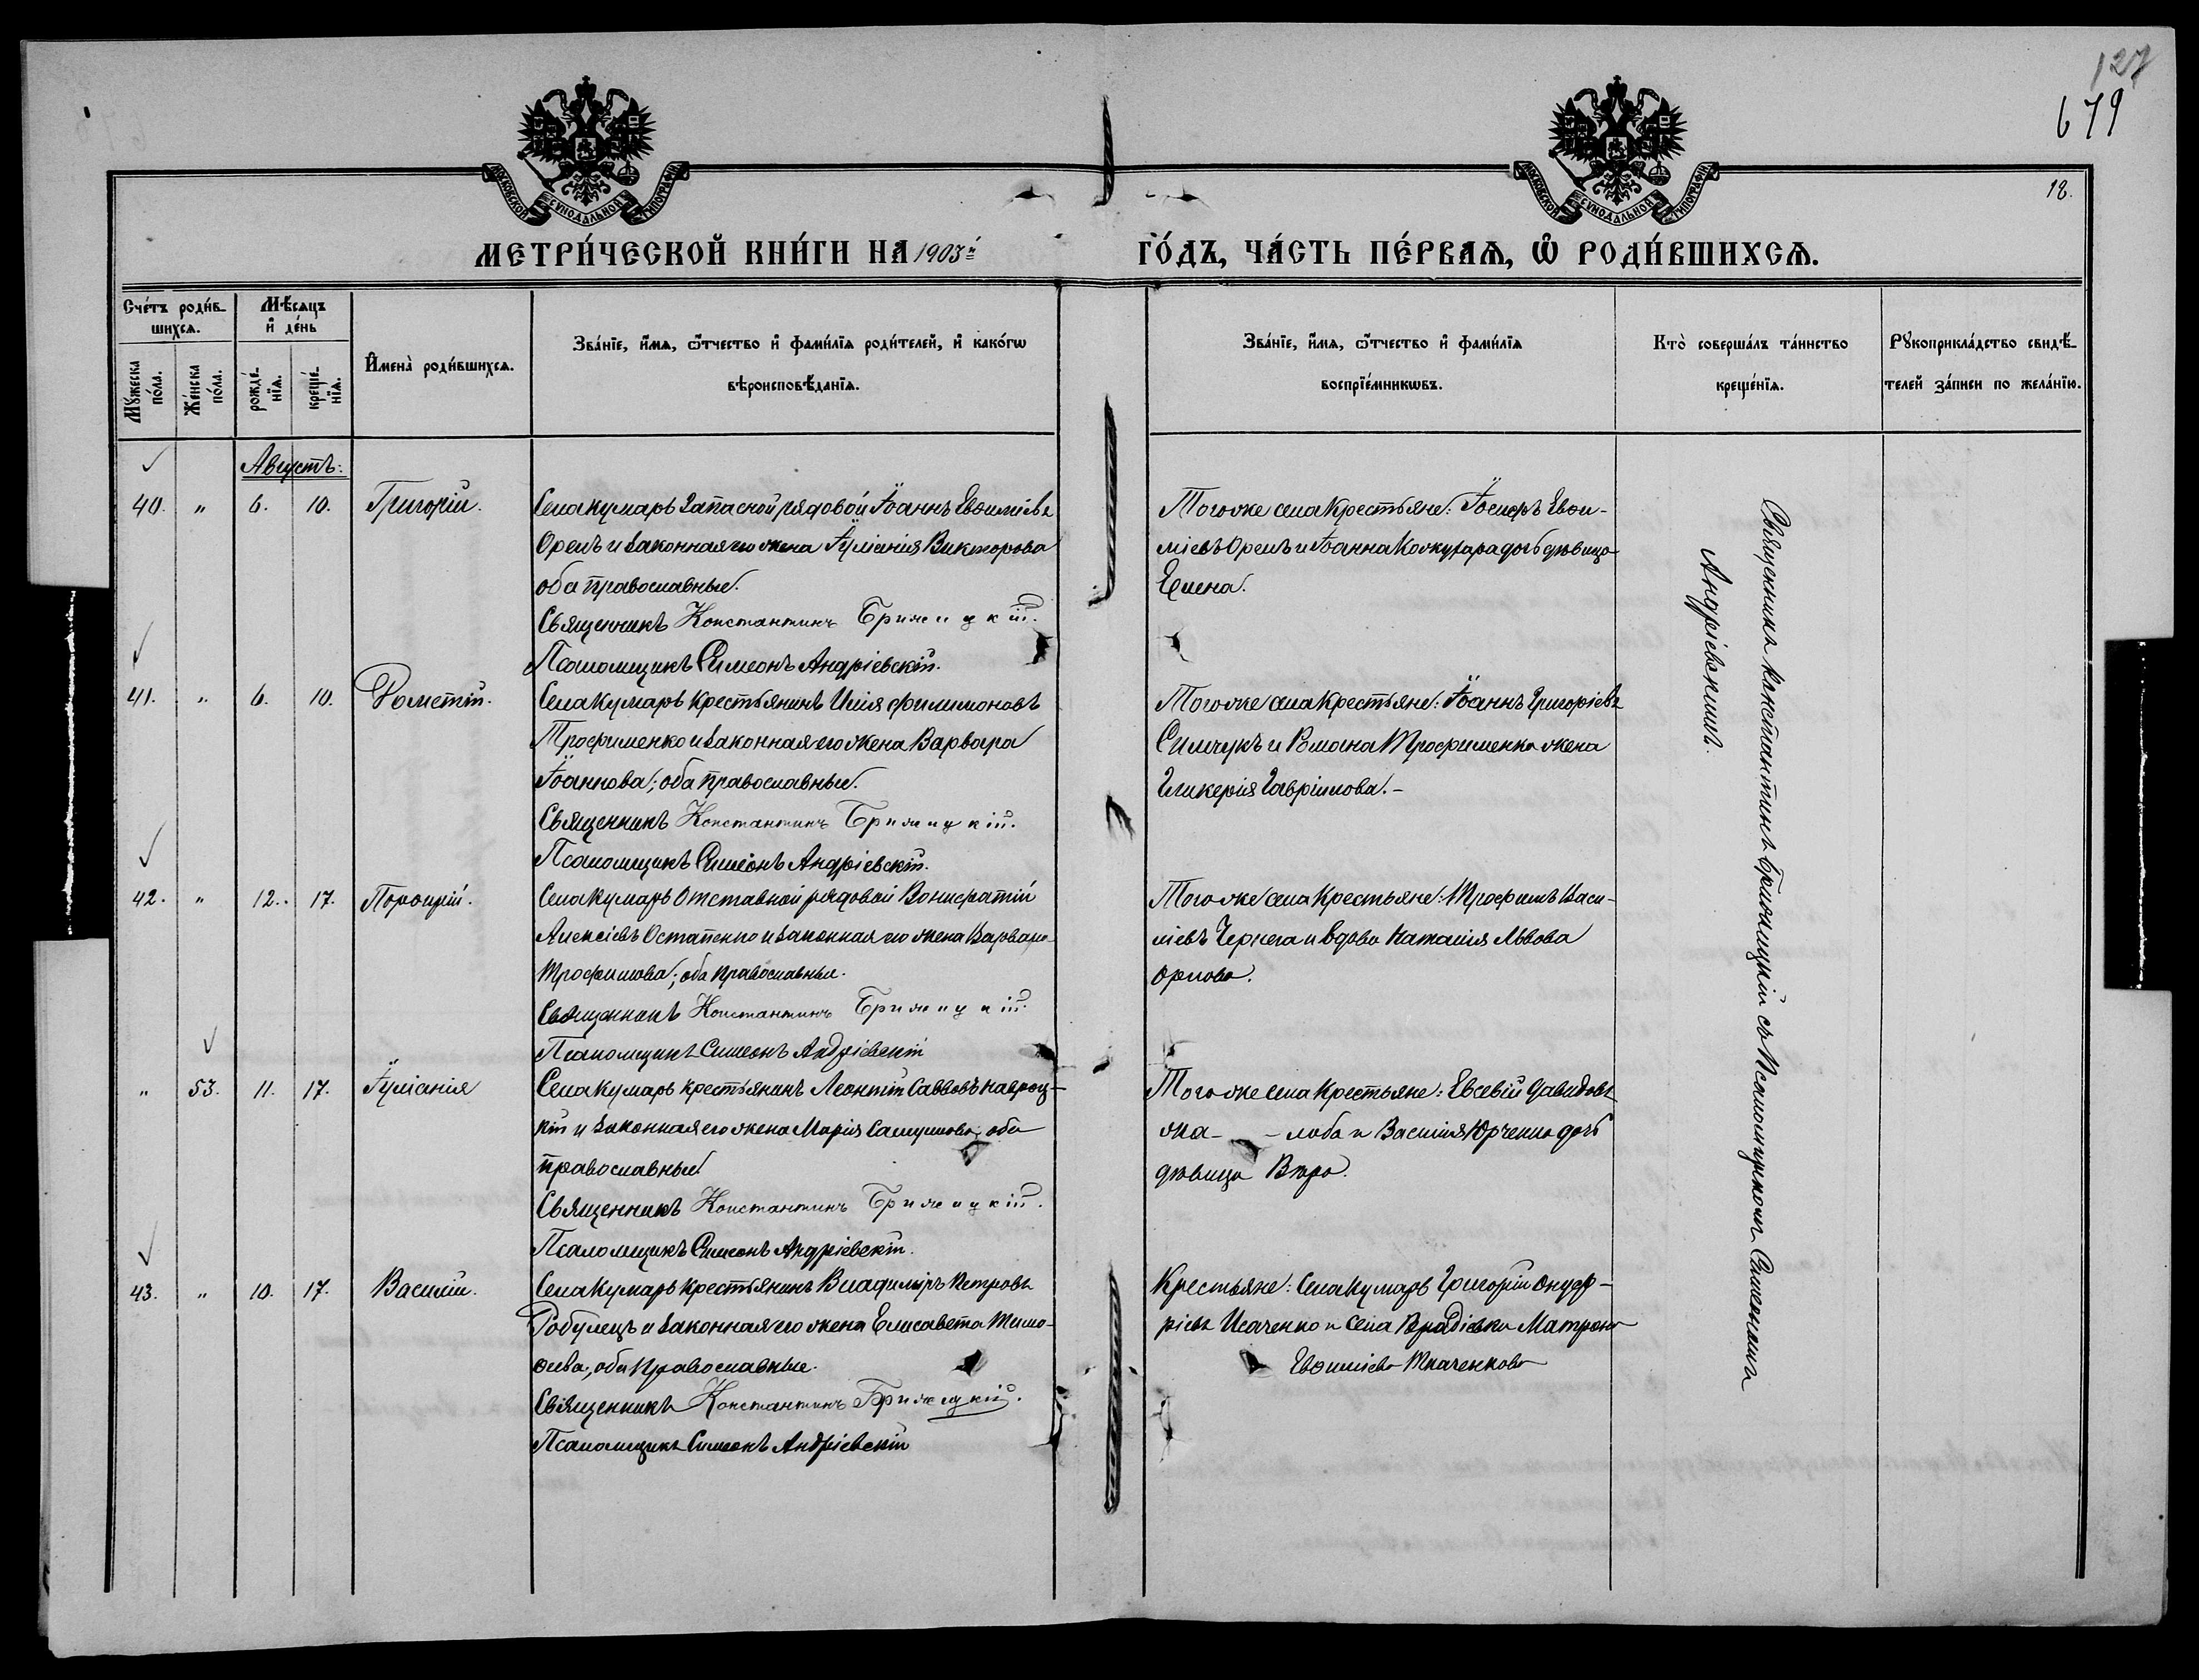 127
679
18.
МОСКОВСКОЙ СУНОДАЛЬНОЙ ТИПОГРАФІИ
МОСКОВСКОЙ СУНОДАЛЬНОЙ ТИПОГРАФІИ
МЕТРИ́ЧЕСКОЙ КНИ́ГИ НА 1903й ГО́ДЪ, ЧА́СТЬ ПЕ́РВАѦ, Ѽ РОДИ́ВШИХСѦ.
Сче́тъ роди́в-
шихсѧ.
Мѣ́сѧцъ
и҆ де́нь
Мꙋ́жеска по́ла.
Же́нска по́ла.
рожде́-нїѧ.
креще́-нїѧ.
И҆мена̀ роди́вшихсѧ.
Зва́нїе, и҆́мѧ, ѻ҆́тчество и҆ фами́лїѧ роди́телей, и҆ како́гѡ
вѣроисповѣ́данїѧ.
Зва́нїе, и҆́мѧ, ѻ҆́тчество и҆ фами́лїѧ
воспрїе́мникѡвъ.
Кто̀ соверша́лъ та́инство
креще́нїѧ.
Рꙋкоприкла́дство свидѣ́-
телей за́писи по жела́нїю.
Августъ:
40. " 6. 10. Григорій.
Села Кумаръ Запасной рядовой Іоаннъ Евѳиміевъ
Орелъ и законная его жена Іуліанія Викторова
оба православные.
Священникъ Константинъ Брижицкій.
Псаломщикъ Симеонъ Андріевскій.
Того же села Крестьяне: Іосифъ Евѳи-
міевъ Орелъ и Іоанна дочь дѣвица
Елена.
41. " 6. 10. Фометій.
Села Кумаръ Крестьянинъ Илія Филимоновъ
Трофименко и законная его жена Варвара
Іоаннова; оба православные.
Священникъ Константинъ Брижицкій.
Псаломщикъ Симеонъ Андріевскій.
Того же села Крестьяне: Іоаннъ Григоріевъ
Симчукъ и Романа Трофименка жена
Гликерія Гавріилова.-
42. " 12. 17. Порѳирій.
Села Кумаръ Отставной рядовой Вонифатій
Алексіевъ Остапенко и законная его жена Варвара
Трофимова; оба православные.
Священникъ Константинъ Брижицкій.
Псаломщикъ Симеонъ Андріевскій
Того же села Крестьяне: Трофимъ Васи-
ліевъ Чернега и вдова Наталія Львова
Орлова.
" 53. 11. 17. Іуліанія
Села Кумаръ крестьянинъ Леонтій Саввовъ Навроц-
кій и законная его жена Марія Самуилова, оба
православные
Священникъ Константинъ Брижицкій.
Псаломщикъ Симеонъ Андріевскій.
Того же села Крестьяне: Евсевій Давидовъ
жа- -лоба и Василія Юрченка дочь
дѣвица Вѣра.
43. " 10. 17. Василій.
Села Кумаръ Крестьянинъ Владиміръ Петровъ
Робулецъ и законная его жена Елисавета Тимо-
ѳеева, оба православные.
Священникъ Константинъ Брижицкій.
Псаломщикъ Симеонъ Андріевскій
Крестьяне: села Кумаръ Григорій Онуф-
ріевъ Исаченко и села Врадіевки Матрона
Евѳиміева Ткаченкова
Священникъ Константинъ Брижицкій съ Псаломщикомъ Симеономъ
Андріевскимъ.